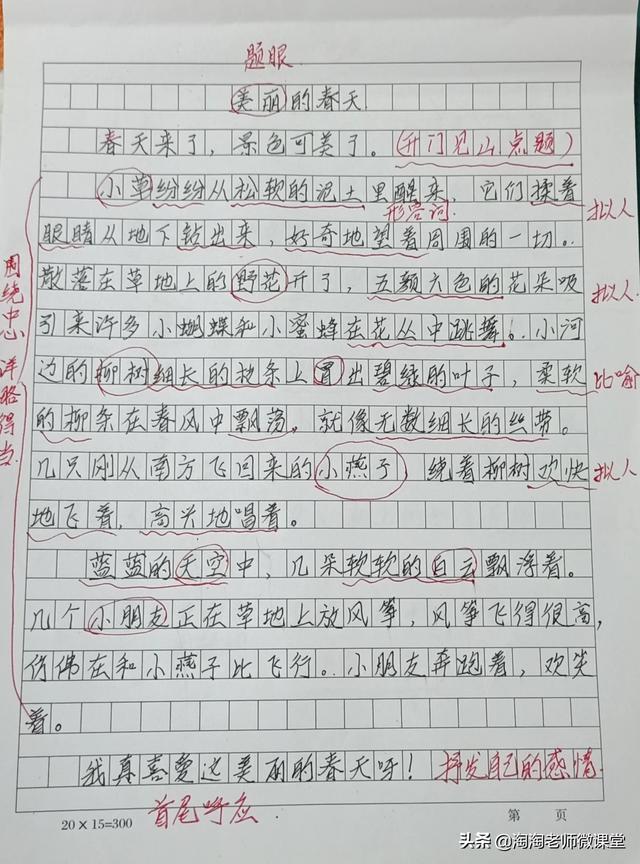 题眼
美丽的春天
春天来了，景色可美了。（开门见山点题）
小草纷纷从松软的泥土里醒来，它们揉着 拟人
形容词
眼睛从地下钻出来，好奇地望着周围的一切。
散落在草地上的野花开了，五颜六色的花朵吸 拟人
引来许多小蝴蝶和小蜜蜂在花丛中跳舞。小河
边的柳树细长的枝条上冒出碧绿的叶子，柔软 比喻
的柳条在春风中飘荡，就像无数细长的丝带。
几只刚从南方飞回来的小燕子 绕着柳树欢快 拟人
地飞着，高兴地唱着。
蓝蓝的天空中，几朵软软的白云飘浮着。
几个小朋友正在草地上放风筝，风筝飞得很高，
仿佛在和小燕子比飞行。小朋友奔跑着，欢笑
着。
我真喜爱这美丽的春天呀！抒发自己的感情
首尾呼应
围绕中心 详略得当
20×15=300 第 页
头条 @淘淘老师微课堂